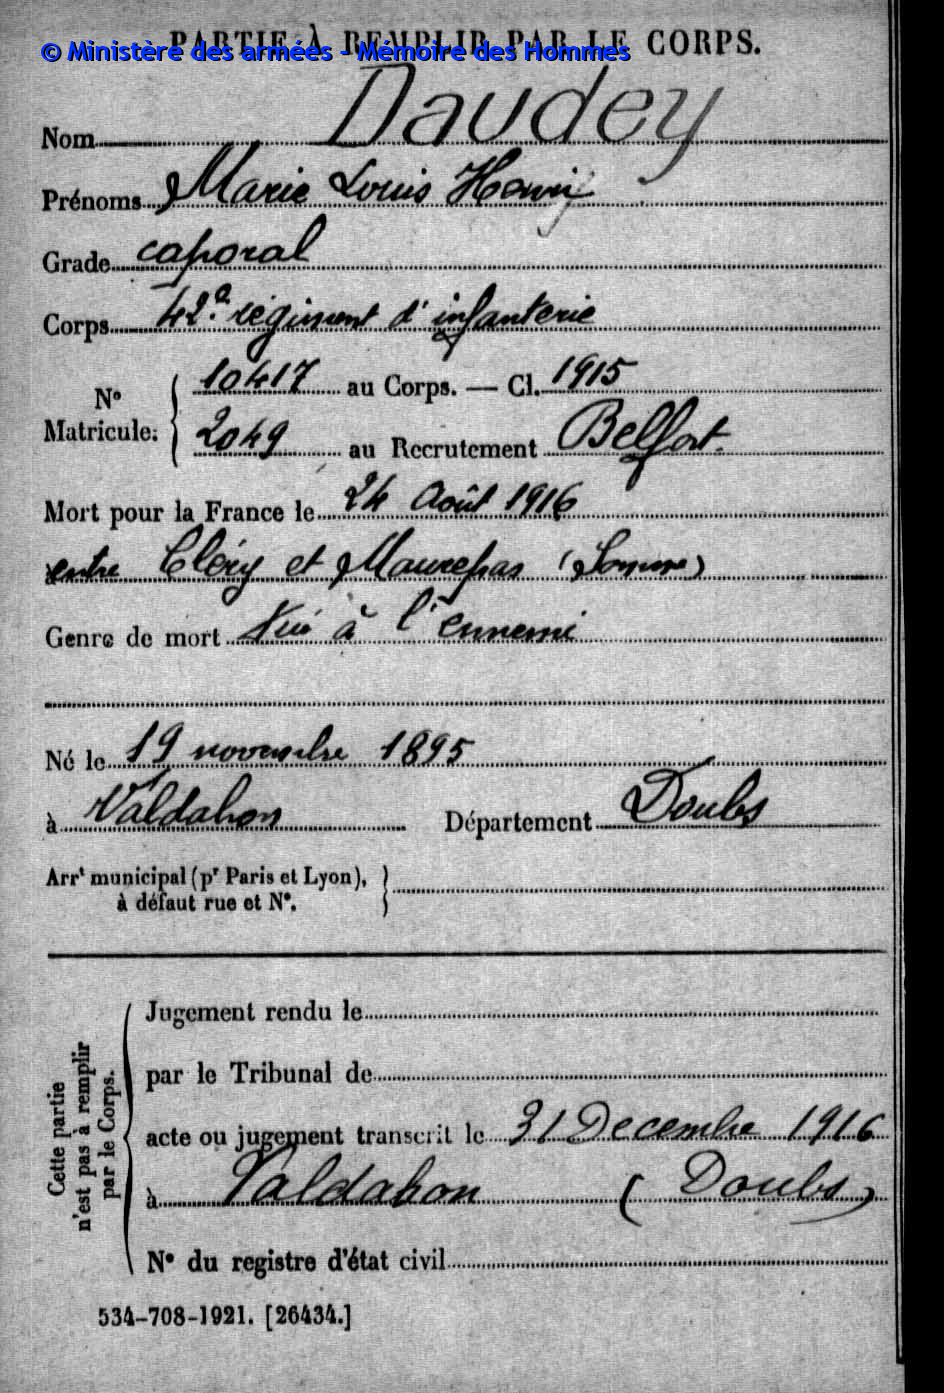 PARTIE À REMPLIR PAR LE CORPS.
© Ministère des armées - Mémoire des Hommes
Nom Daudey
Prénoms Marie Louis Henri
Grade caporal
Corps 42e régiment d'infanterie
N° Matricule. { 10417 au Corps. — Cl. 1915
2049 au Recrutement Belfort.
Mort pour la France le 24 Août 1916
entre Cléry et Maurepas (Somme)
Genre de mort Tué à l'ennemi
Né le 19 novembre 1895
à Valdahon Département Doubs
Arrt municipal (pr Paris et Lyon),
à défaut rue et N°.
Cette partie
n'est pas à remplir
par le Corps.
Jugement rendu le
par le Tribunal de
acte ou jugement transcrit le 31 Decembre 1916
à Valdahon (Doubs)
N° du registre d'état civil
534-708-1921. [26434.]